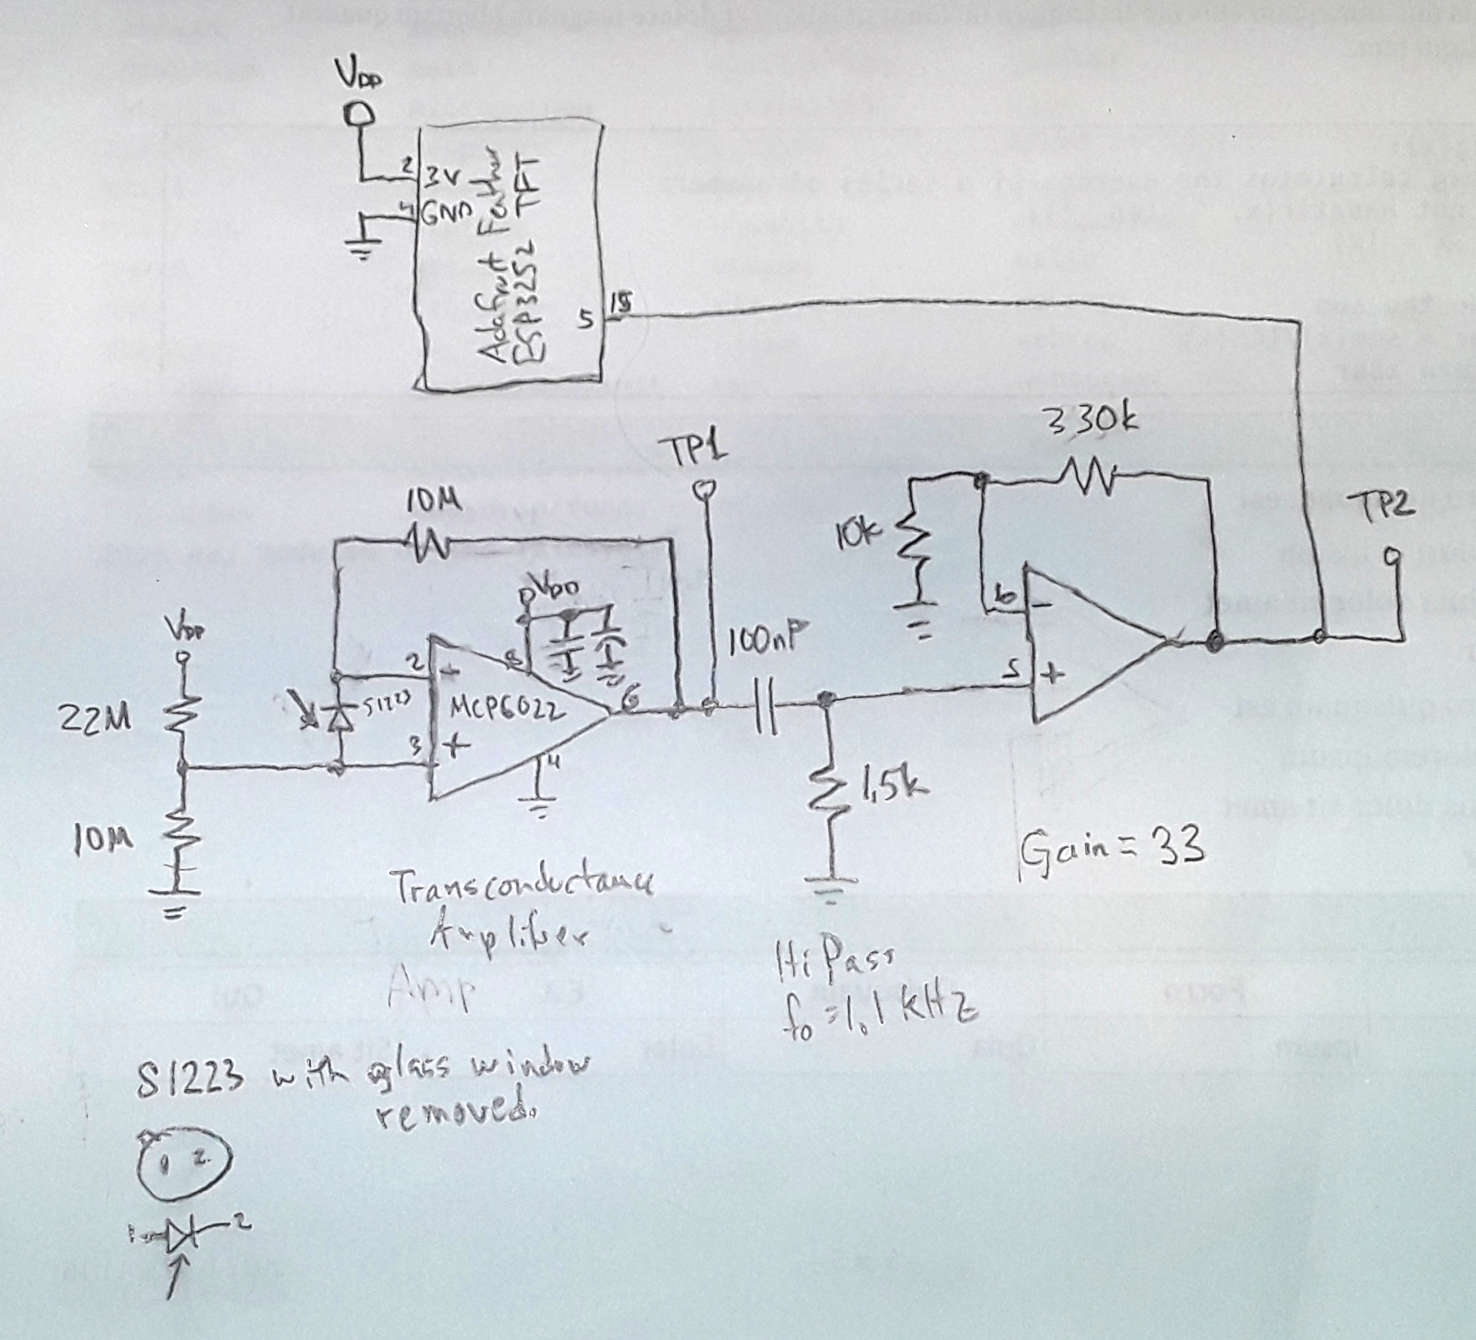 VDD
2
3V
4
GND
Adafruit Feather
ESP32S2 TFT
5
15
330k
TP1
TP2
10M
10k
VDD
VDD
6
8
100nF
2
S1223
MCP6022
6
5
+
22M
3
+
4
1,5k
10M
Gain = 33
Transconductance
Amplifier
Amp
Hi Pass
f0 = 1.1 kHz
S1223 with glass window
removed.
1 2
1 2